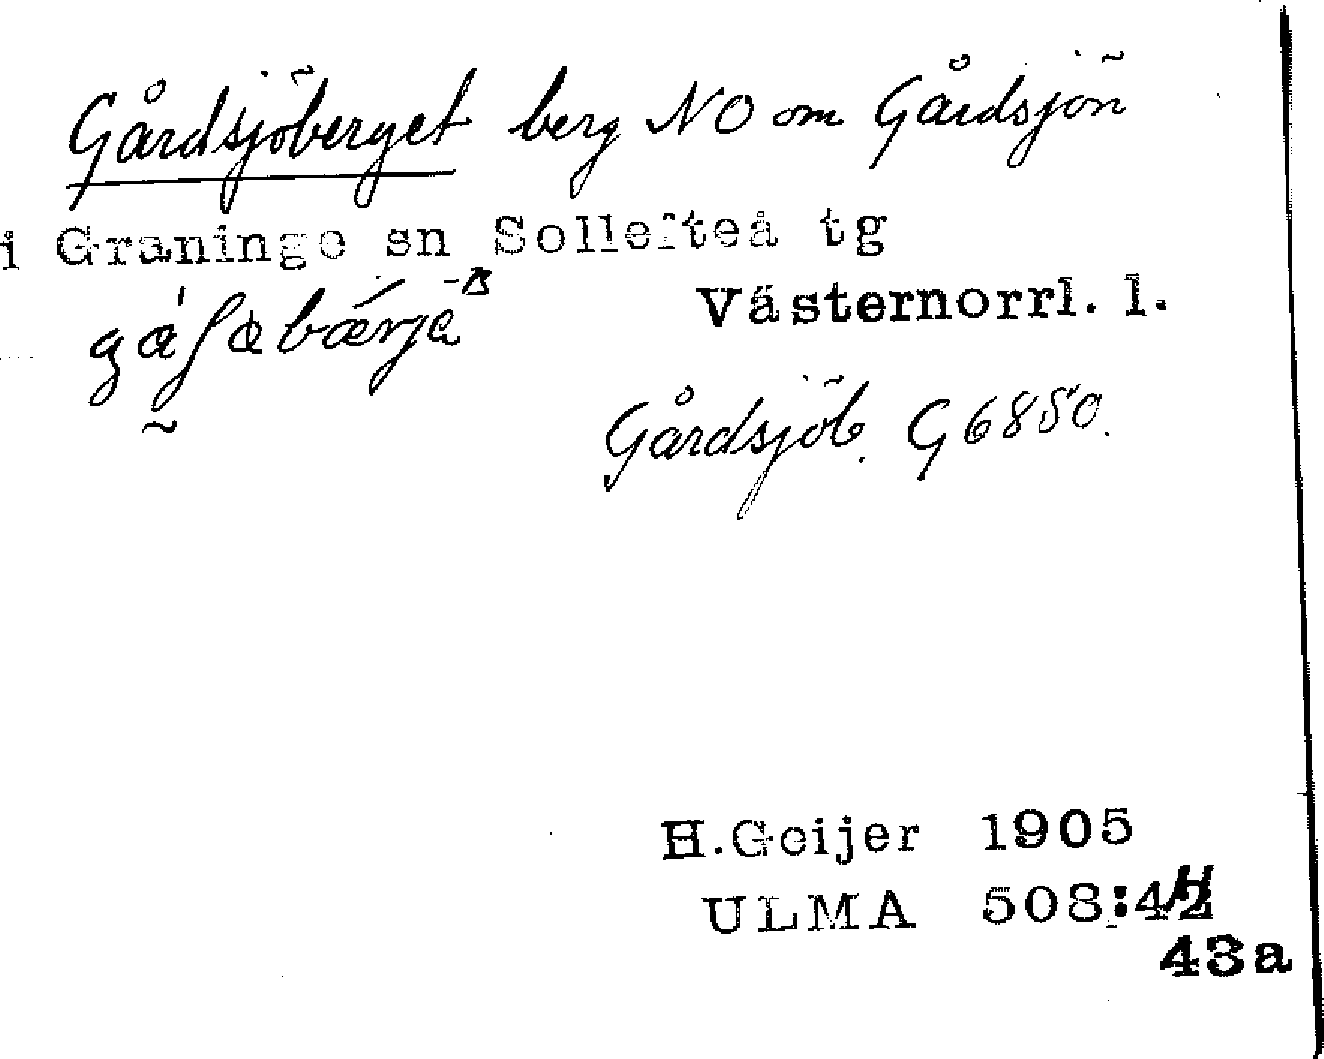 Gårdsjöberget berg NO om Gårdsjön
i Graninge sn Sollefteå tg
Västernorrl. l.
Gårdsjöb. G6850.
H.Geijer 1905
ULMA 508:4
43a